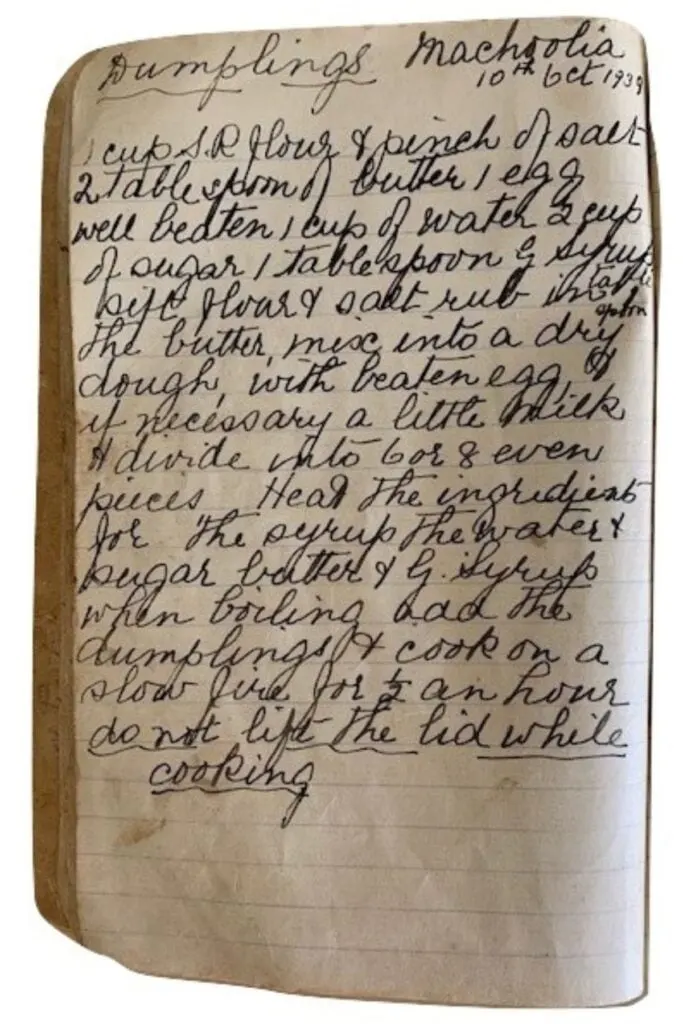 Dumplings Machoolia
10th Oct 1939
1 cup S.R flour & pinch of salt
2 tablespoon of butter 1 egg
well beaten 1 cup of water 2 cup
of sugar 1 tablespoon G Syrup
sift flour & salt rub in 1 table
spoon
the butter, mix into a dry
dough, with beaten egg, &
if necessary a little milk
& divide into 6 or 8 even
pieces Heat the ingredients
for the syrup the water &
sugar butter & G. Syrup
when boiling add the
dumplings & cook on a
slow fire for ½ an hour
do not lift the lid while
cooking